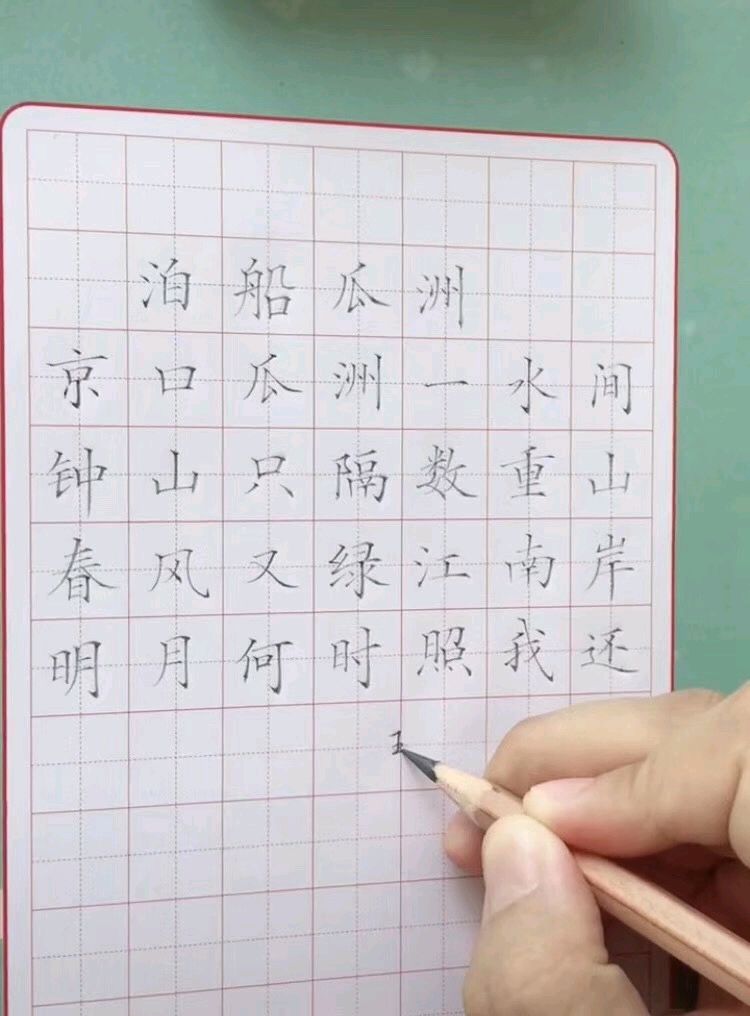 泊船瓜洲
京口瓜洲一水间
钟山只隔数重山
春风又绿江南岸
明月何时照我还
王